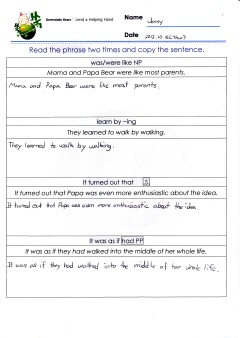 Berenstain Bears' Lend a Helping Hand
Name
Date
Read the phrase two times and copy the sentence.
was/were like NP
Mama and Papa Bear were like most parents.
Mama and Papa Bear were like most parents.
learn by ~ing
They learned to walk by walking.
They learned to walk by walking.
It turned out that S
It turned out that Papa was even more enthusiastic about the idea.
It turned out that Papa was even more enthusiastic about the idea.
It was as if had PP
It was as if they had walked into the middle of her whole life.
It was as if they had walked into the middle of her whole life.